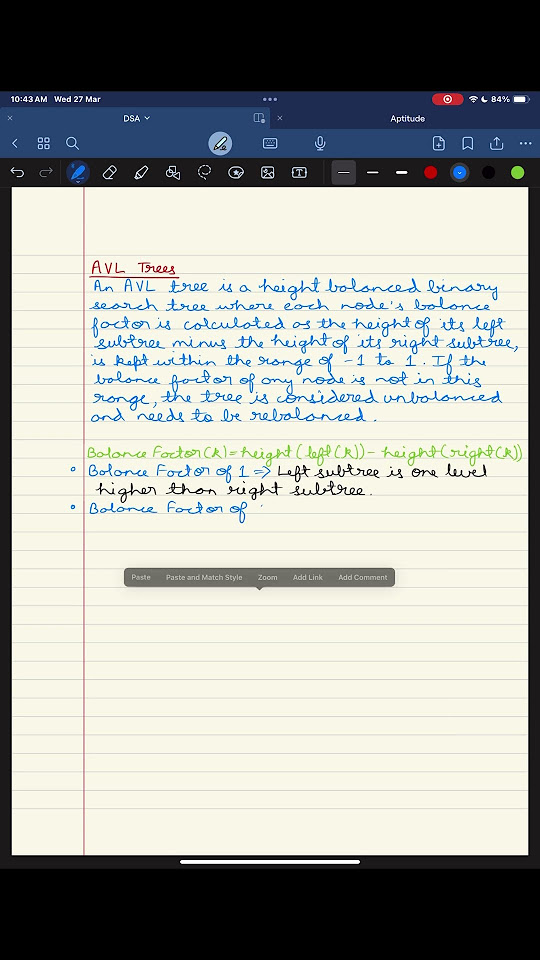 10:43 AM Wed 27 Mar
84%
DSA
Aptitude
AVL Trees
An AVL tree is a height balanced binary
search tree where each node's balance
factor is calculated as the height of its left
subtree minus the height of its right subtree,
is kept within the range of -1 to 1. If the
balance factor of any node is not in this
range, the tree is considered unbalanced
and needs to be rebalanced.
Balance Factor(k) = height(left(k)) - height(right(k))
• Balance Factor of 1 => Left subtree is one level
higher than right subtree.
• Balance Factor of
Paste Paste and Match Style Zoom Add Link Add Comment